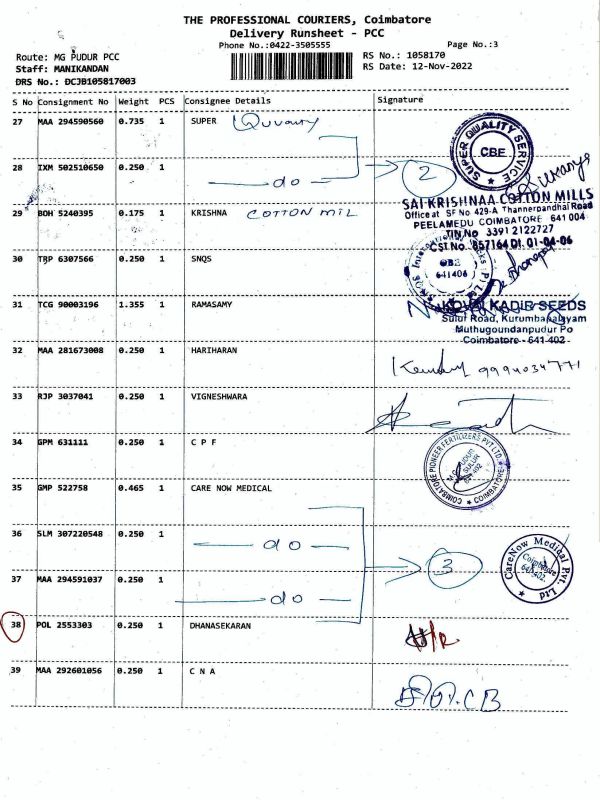 THE PROFESSIONAL COURIERS, Coimbatore
Delivery Runsheet - PCC
Phone No.:0422-3505555 Page No.:3
Route: MG PUDUR PCC RS No.: 1058170
Staff: MANIKANDAN RS Date: 12-Nov-2022
DRS No.: DCJB105817003
S No Consignment No Weight PCS Consignee Details Signature
27 MAA 294590560 0.735 1 SUPER
SUPER QUALITY SERVICE CBE
28 IXM 502510650 0.250 1 do 2
SAI KRISHNAA COTTON MILLS
29 BOH 5240395 0.175 1 KRISHNA COTTON MIL
Office at SF No 429-A Thannerpandhal Road
PEELAMEDU COIMBATORE 641 004
TIN No 3391 2122727
CST No. 857164 Dt. 01-04-06
30 TRP 6307566 0.250 1 SNQS
641406
31 TCG 90003196 1.355 1 RAMASAMY
KOVAI KADIR SEEDS
Sulur Road, Kurumbapalayam
Muthugoundanpudur Po
Coimbatore - 641 402
32 MAA 281673008 0.250 1 HARIHARAN
33 RJP 3037041 0.250 1 VIGNESHWARA
34 GPM 631111 0.250 1 C P F
COIMBATORE PIONEER FERTILIZERS PVT LTD. COIMBATORE
SULUR
35 GMP 522758 0.465 1 CARE NOW MEDICAL
36 SLM 307220548 0.250 1 do
3
CareNow Medical Pvt. Ltd
Coimbatore
37 MAA 294591037 0.250 1 do
38 POL 2553303 0.250 1 DHANASEKARAN
39 MAA 292601056 0.250 1 C N A